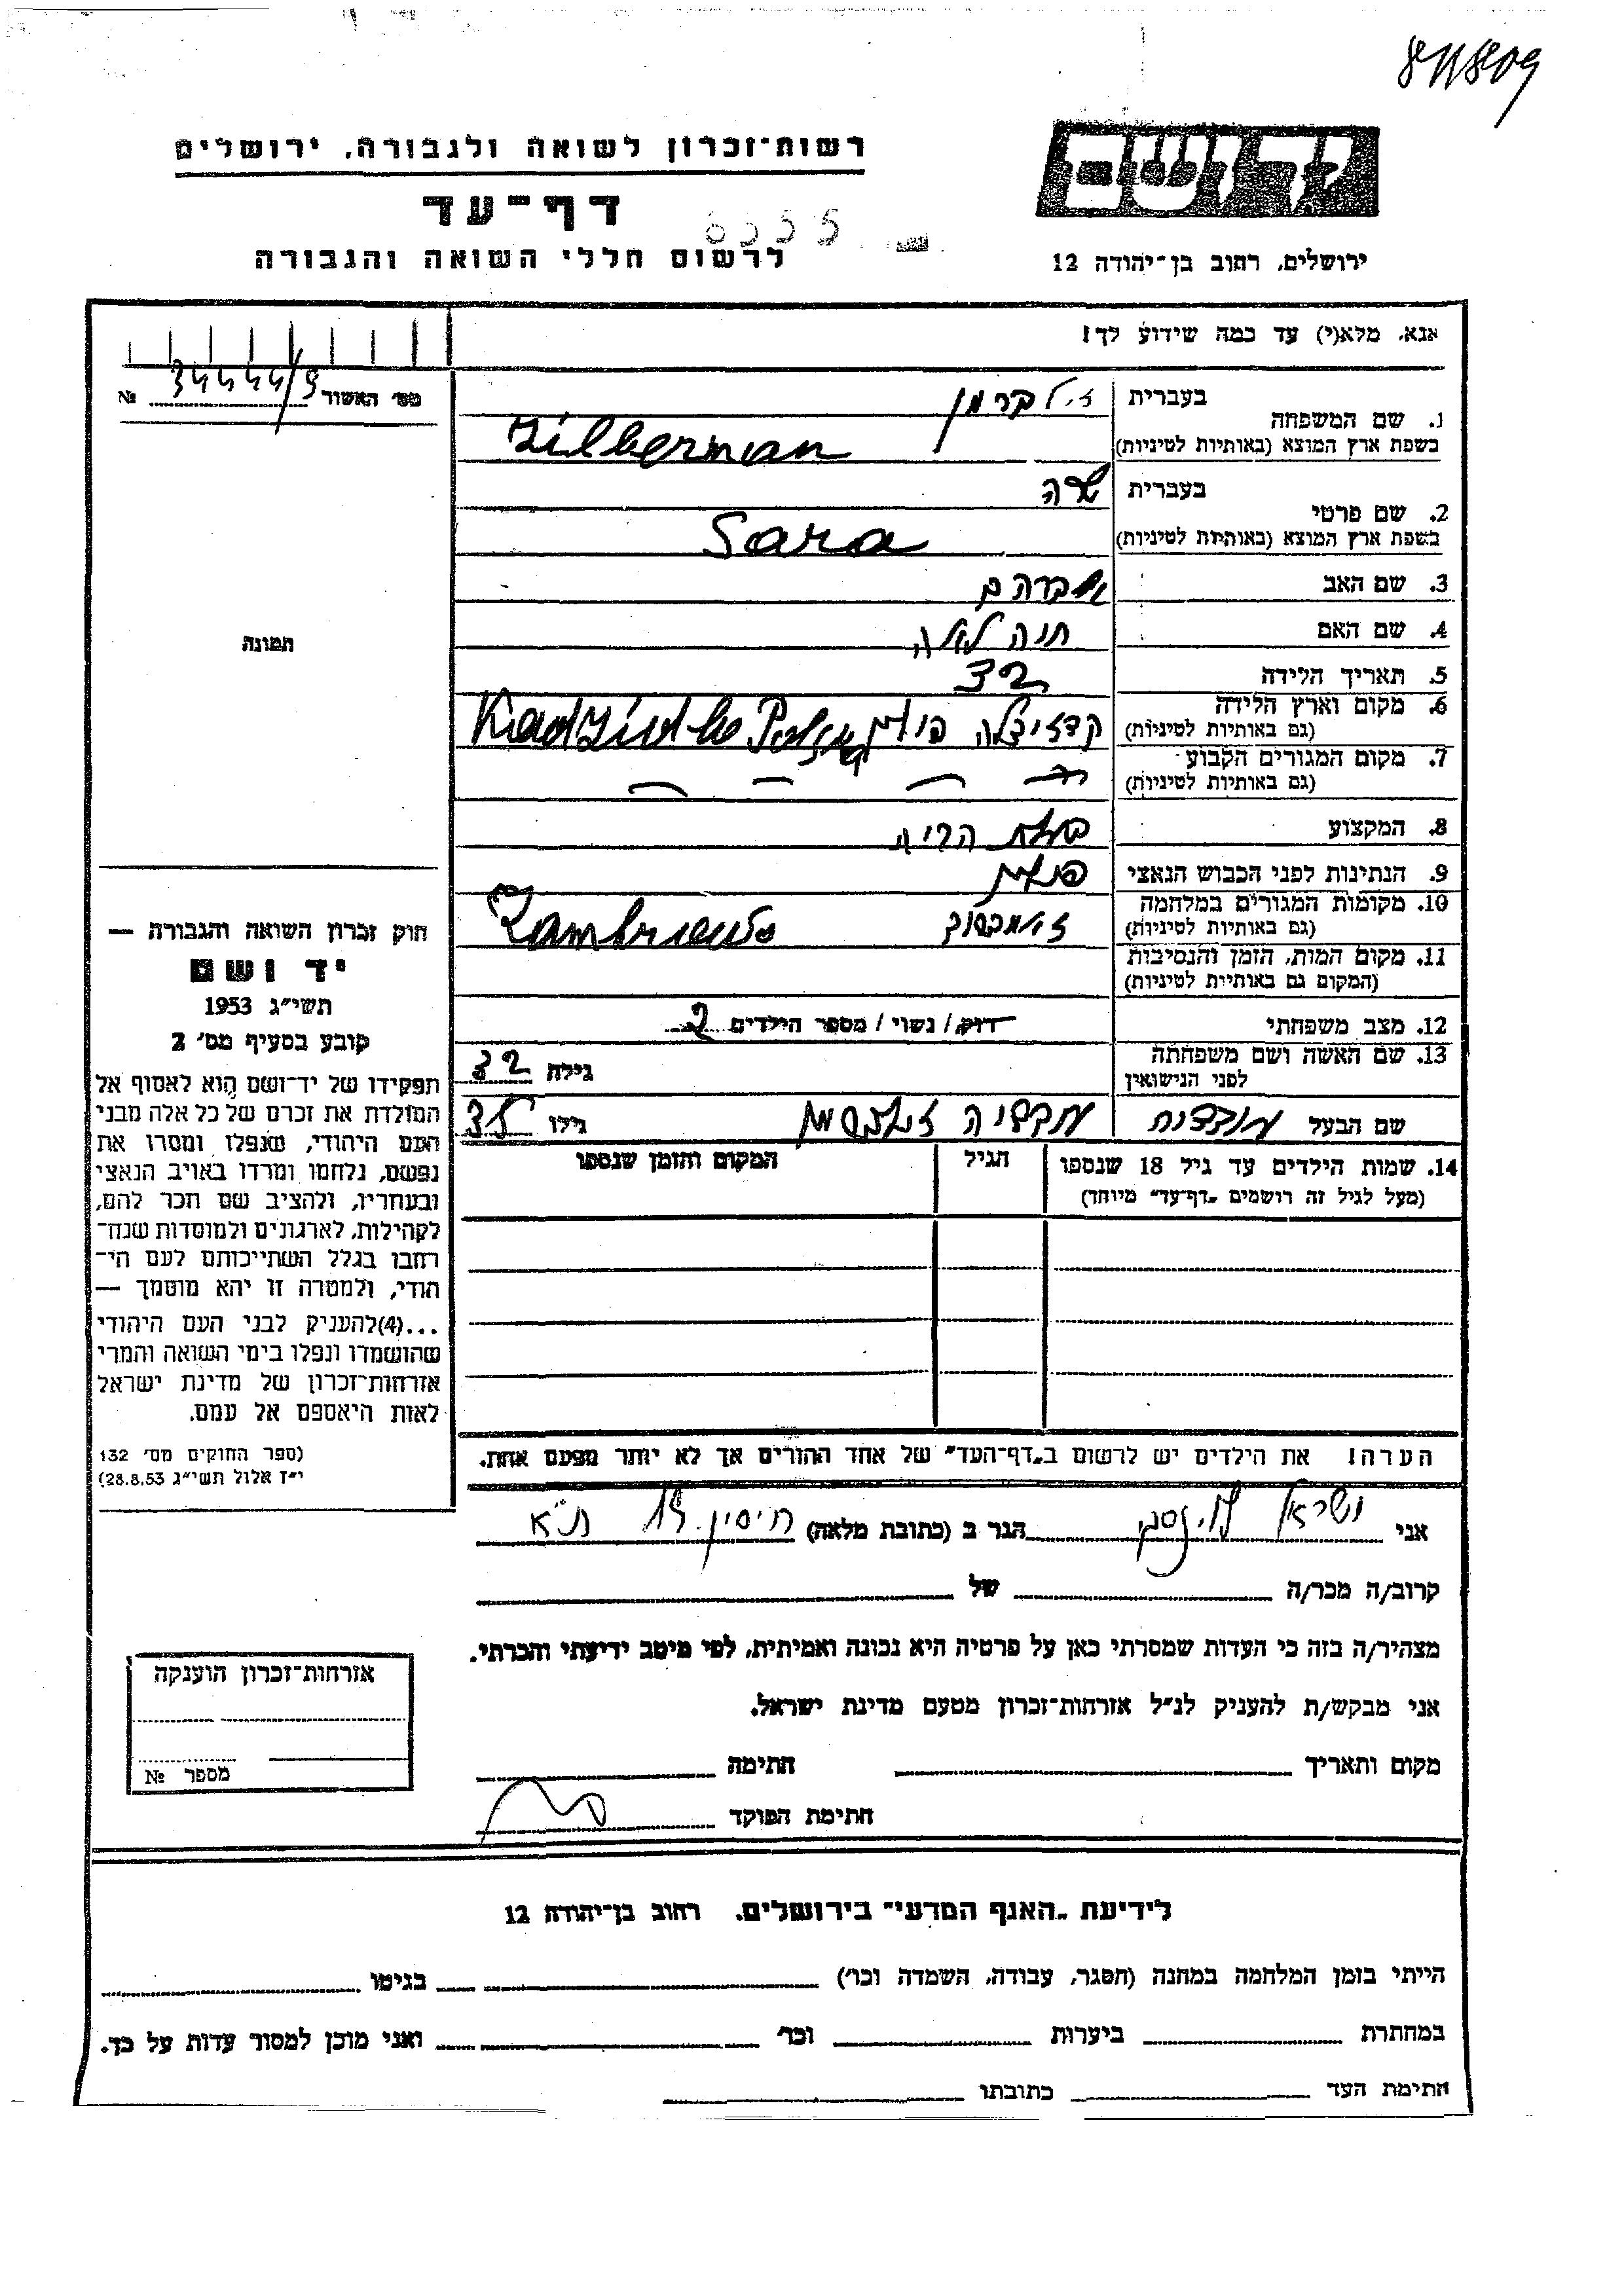 רשות־זכרון לשואה ולגבורה, ירושלים
דף־עד
לרשום חללי השואה והגבורה
ירושלים, רחוב בן־יהודה 12
אנא, מלא(י) עד כמה שידוע לך!
מס׳ האשור 34444/9 №
1. שם המשפחה
בעברית זילברמן
בשפת ארץ המוצא (באותיות לטיניות) Zilberman
2. שם פרטי
בעברית שרה
בשפת ארץ המוצא (באותיות לטיניות) Sara
3. שם האב אברהם
4. שם האם חנה
5. תאריך הלידה 32
6. מקום וארץ הלידה
(גם באותיות לטיניות) פולין
7. מקום המגורים הקבוע
(גם באותיות לטיניות)
8. המקצוע בעלת
9. הנתינות לפני הכבוש הנאצי פולנית
10. מקומות המגורים במלחמה
(גם באותיות לטיניות)
11. מקום המות, הזמן והנסיבות
(המקום גם באותיות לטיניות)
12. מצב משפחתי רוק / נשוי / מספר הילדים 2
13. שם האשה ושם משפחתה
לפני הנישואין גילה 32
שם הבעל גילו 35
14. שמות הילדים עד גיל 18 שנספו
(מעל לגיל זה רושמים „דף־עד״ מיוחד)
הגיל
המקום והזמן שנספו
הערה! את הילדים יש לרשום ב„דף־העד״ של אחד ההורים אך לא יותר מפעם אחת.
תמונה
חוק זכרון השואה והגבורה —
יד ושם
תשי״ג 1953
קובע בסעיף מס׳ 2
תפקידו של יד־ושם הוא לאסוף אל
המולדת את זכרם של כל אלה מבני
העם היהודי, שנפלו ומסרו את
נפשם, נלחמו ומרדו באויב הנאצי
ובעוזריו, ולהציב שם וזכר להם,
לקהילות, לארגונים ולמוסדות שנח־
רבו בגלל השתייכותם לעם הי־
הודי, ולמטרה זו יהא מוסמך —
...(4)להעניק לבני העם היהודי
שהושמדו ונפלו בימי השואה והמרי
אזרחות־זכרון של מדינת ישראל
לאות היאספם אל עמם.
(ספר החוקים מס׳ 132
י״ז אלול תשי״ג 28.8.53)
אני ישראל הגר ב (כתובת מלאה) חיסין 19 ת״א
קרוב/ה מכר/ה של
מצהיר/ה בזה כי העדות שמסרתי כאן על פרטיה היא נכונה ואמיתית, לפי מיטב ידיעתי והכרתי.
אני מבקש/ת להעניק לנ״ל אזרחות־זכרון מטעם מדינת ישראל.
מקום ותאריך חתימה
חתימת הפוקד
אזרחות־זכרון הוענקה
מספר №
לידיעת „האגף המדעי״ בירושלים, רחוב בן־יהודה 12
הייתי בזמן המלחמה במחנה (הסגר, עבודה, השמדה וכו׳) בגיטו
במחתרת ביערות וכו׳ ואני מוכן למסור עדות על כך.
חתימת העד כתובתו